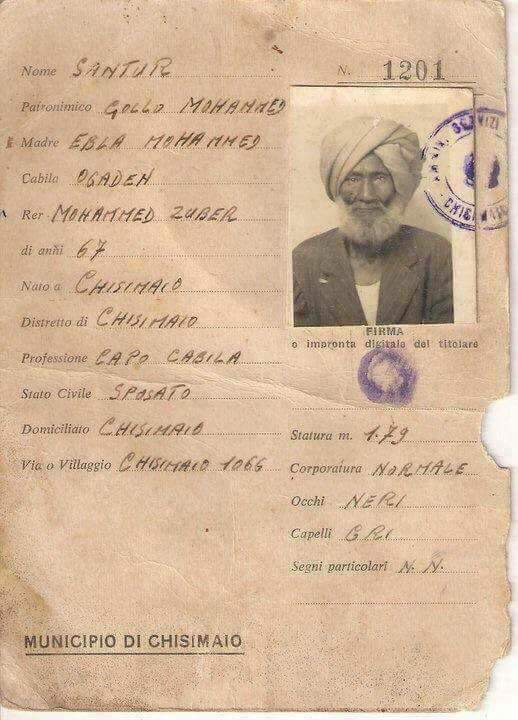 Nome SANTUR
N. 1201
Patronimico GOLLO MOHAMMED
Madre EBLA MOHAMMED
Cabila OGADEN
Rer MOHAMMED ZUBER
di anni 67
Nato a CHISIMAIO
Distretto di CHISIMAIO
Professione CAPO CABILA
Stato Civile SPOSATO
Domiciliato CHISIMAIO
Via o Villaggio CHISIMAIO 1066
SERVIZI
CHISIMAIO
FIRMA
o impronta digitale del titolare
Statura m. 1.79
Corporatura NORMALE
Occhi NERI
Capelli GRI
Segni particolari N. N.
MUNICIPIO DI CHISIMAIO